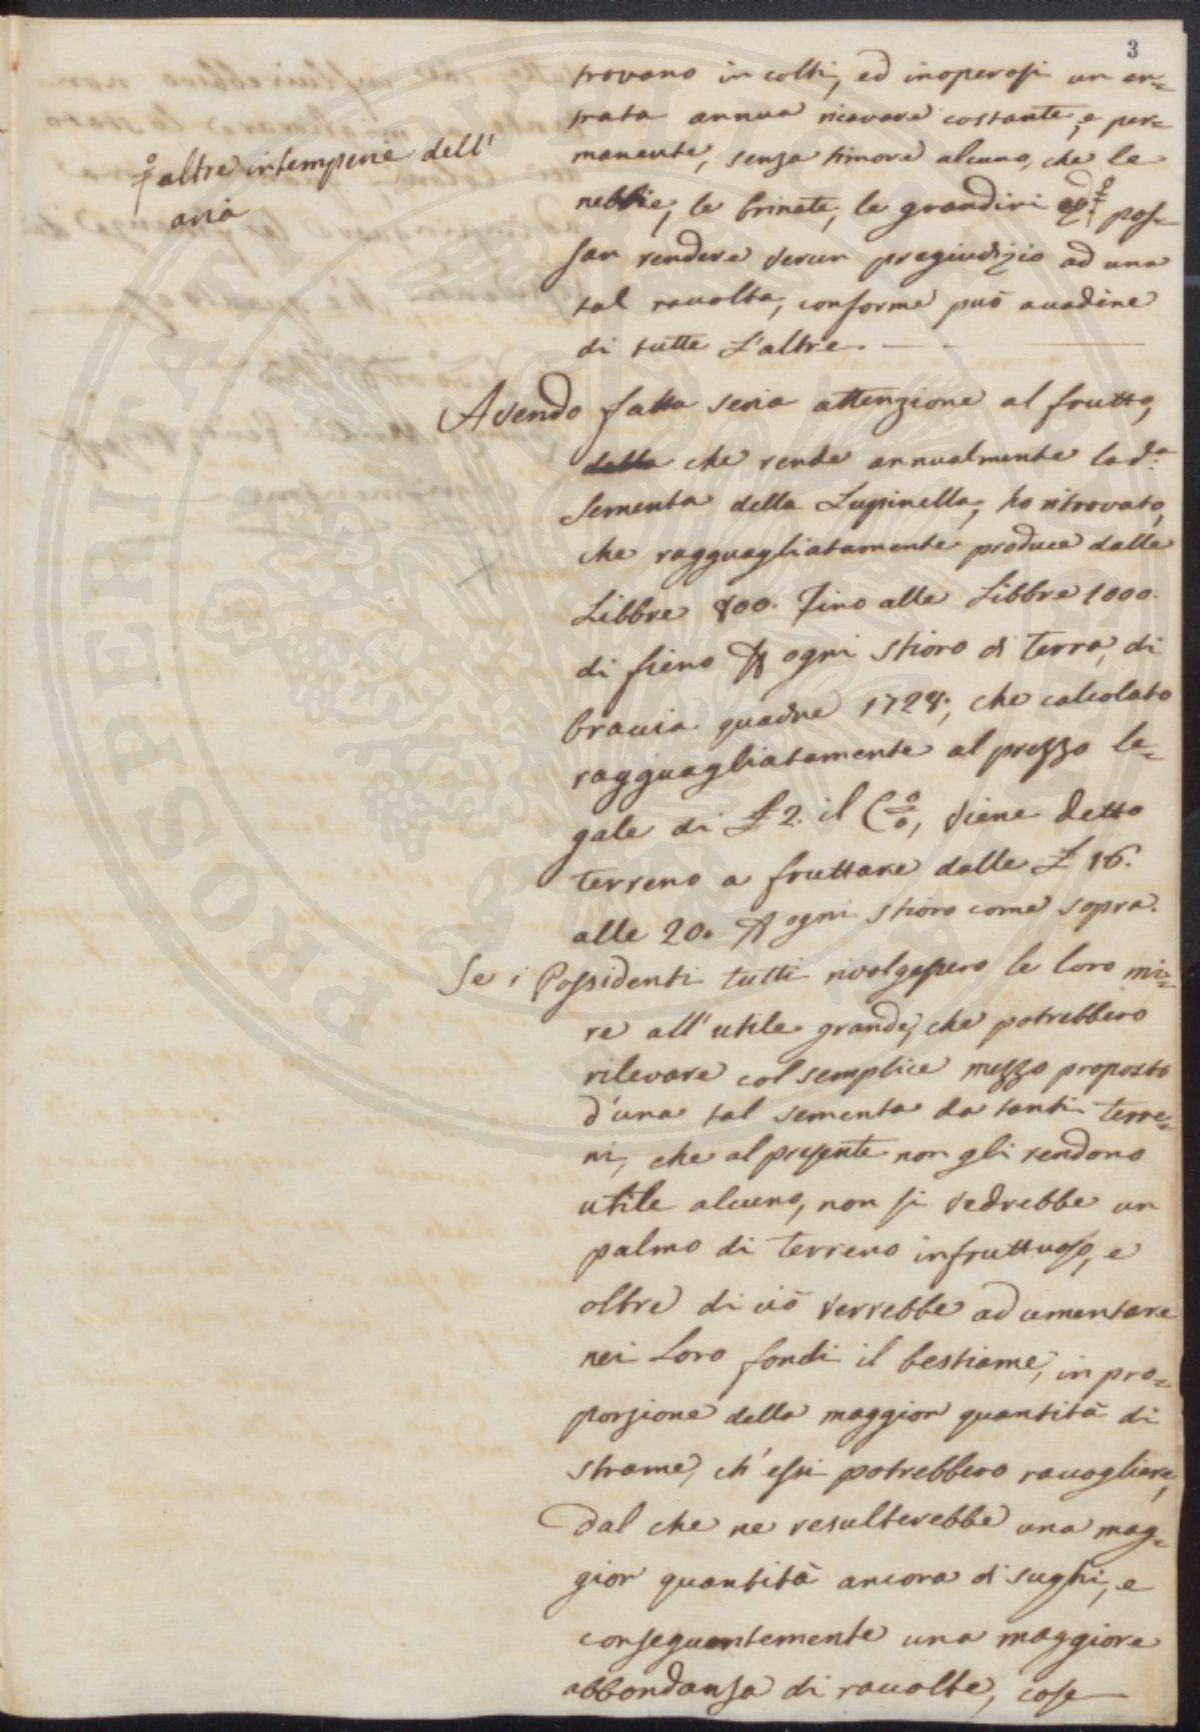 3
trovano in colti, ed inoperosi un en=
trata annua ricavare costante, e per=
manente, senza timore alcuno, che le
nebbie, le brinate, le grandini ed pos=
san rendere verun pregiudizio ad una
tal raccolta, conforme può accadere
di tutte l'altre.
altre intemperie dell'
aria
Avendo fatta seria attenzione al frutto,
della che rende annualmente la d.a
sementa della Lupinella, ho ritrovato,
che ragguagliatamente produce dalle
Libbre 800. Fino alle Libbre 1000.
di fieno P ogni stioro di terra, di
braccia quadre 1728, che calcolato
ragguagliatamente al prezzo le=
gale di £ 2. il C o/o, viene detto
terreno a fruttare dalle £ 16.
alle 20. P ogni stioro come sopra.
Se i Possidenti tutti rivolgessero le loro mi=
re all'utile grande, che potrebbero
rilevare col semplice mezzo proposto
d'una tal sementa da tanti terre=
ni, che al presente non gli rendono
utile alcuno, non si vedrebbe un
palmo di terreno infruttuoso, e
oltre di ciò verrebbe ad umentare
nei Loro fondi il bestiame, in pro=
porzione della maggior quantità di
strame, ch'essi potrebbero raccogliere,
dal che ne resulterebbe una mag=
gior quantità ancora di sughi, e
conseguentemente una maggiore
abbondanza di raccolte, cose
PROSPERITATI